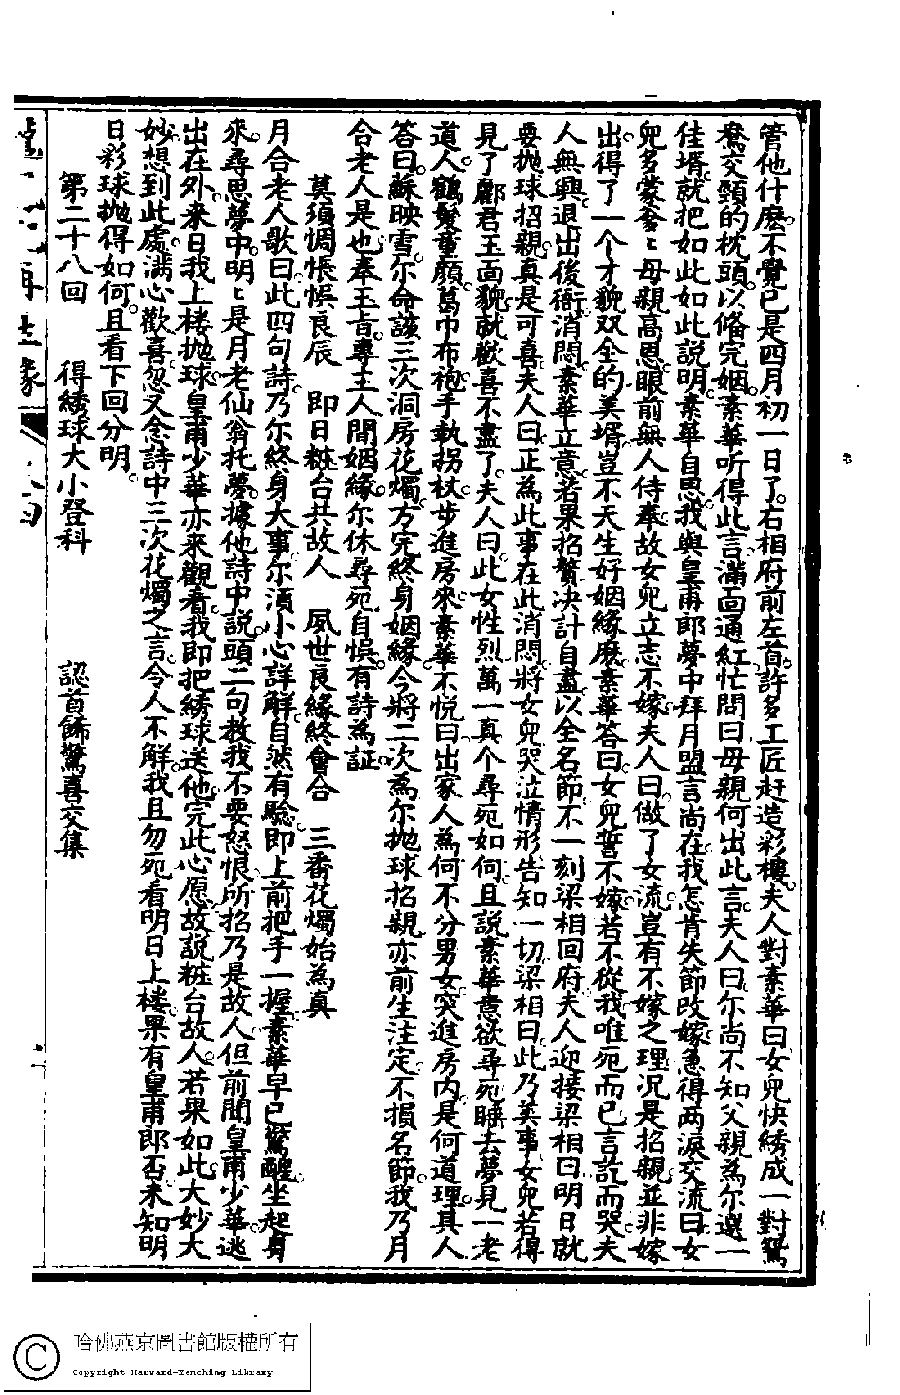 管他什庅不覺已是四月初一日了右相府前左首許多工匠赶造彩樓夫人對素華曰女兒快綉成一對鴛
鴦交頸的枕頭以俻完姻素華听得此言滿面通紅忙問曰母親何出此言夫人曰尔尚不知父親為尔選一
佳壻就把如此如此說明素華自思我與皇甫郎夢中拜月盟言尚在我怎肯失節改嫁急得两淚交流曰女
兒多蒙爹〻母親高恩眼前無人侍奉故女兒立志不嫁夫人曰做了女流豈有不嫁之理况是招親並非嫁
出得了一个才貌双全的美壻豈不天生好姻緣庅素華答曰女兒誓不嫁若不從我唯死而已言訖而哭夫
人無興退出後衙消悶素華立意若果招贅决計自盡以全名節不一刻梁相回府夫人迎接梁相曰明日就
要拋球招親真是可喜夫人曰正為此事在此消悶將女兒哭泣情形告知一切梁相曰此乃美事女兒若得
見了酈君玉面貌就歡喜不盡了夫人曰此女性烈萬一真个尋死如何且說素華意欲尋死睡去夢見一老
道人鶴髮童顔葛巾布袍手執拐杖步進房來素華不悦曰出家人為何不分男女突進房内是何道理其人
答曰蘇映雪尔命該三次洞房花燭方完終身姻緣今將二次為尔拋球招親亦前生注定不損名節我乃月
合老人是也奉玉旨專主人間姻緣尔休尋死自悞有詩為証
莫須惆悵悞良辰　即日粧台共故人　夙世良緣終會合　三番花燭始為真
月合老人歌曰此四句詩乃尔終身大事尔須小心詳解自然有驗即上前把手一握素華早已驚醒坐起身
來尋思夢中明〻是月老仙翁托夢據他詩中說頭二句教我不要怒恨所招乃是故人但前聞皇甫少華逃
出在外來日我上楼拋球皇甫少華亦來觀看我即把綉球送他完此心愿故説粧台故人若果如此大妙大
妙想到此處滿心歡喜忽又念詩中三次花燭之言令人不解我且勿死看明日上楼果有皇甫郎否未知明
日彩球拋得如何且看下回分明
第二十八回　得綉球大小登科　認首飾驚喜交集
再生緣　卷四
哈佛燕京圖書館版權所有
Copyright Harvard-Yenching Library